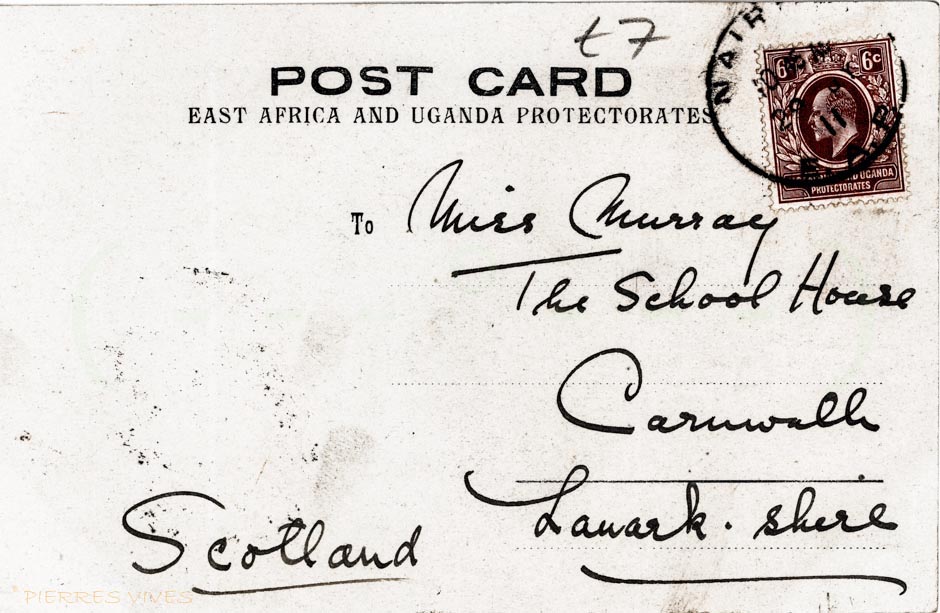 £7
POST CARD
EAST AFRICA AND UGANDA PROTECTORATES
NAIR
6c 6c
29
11
E.A.P.
AND UGANDA
PROTECTORATES
To Miss Murray
The School House
Carnwath
Lanark. shire
Scotland
PIERRES VIVES